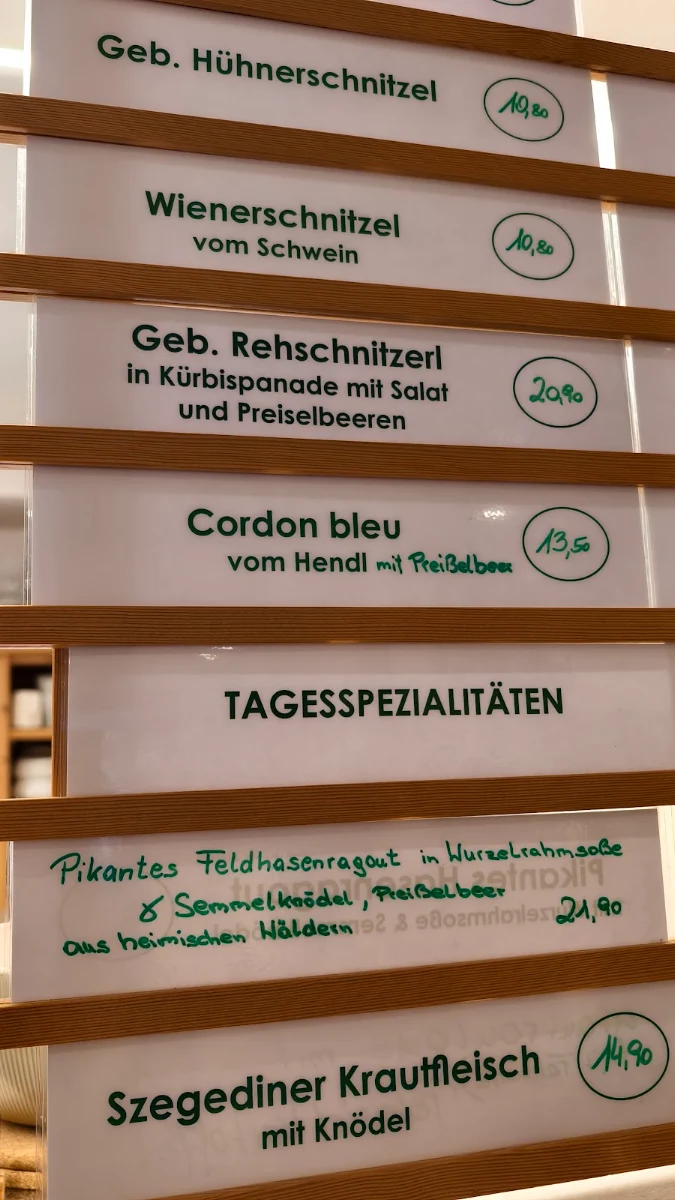 Geb. Hühnerschnitzel 10,80
Wienerschnitzel
vom Schwein 10,80
Geb. Rehschnitzerl
in Kürbispanade mit Salat
und Preiselbeeren 20,90
Cordon bleu
vom Hendl mit Preißelbeer 13,50
TAGESSPEZIALITÄTEN
Pikantes Feldhasenragout in Wurzelrahmsoße
& Semmelknödel, Preißelbeer
aus heimischen Wäldern 21,90
Szegediner Krautfleisch
mit Knödel 14,90